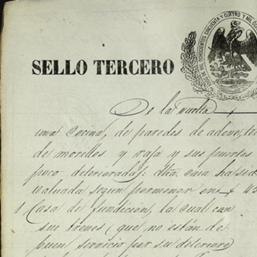 CINCUENTA Y CUATRO Y MIL OCHO
SELLO TERCERO
De la vuelta
una cocina, de paredes de adove, te
de morillos y raja y sus puertas
poco deterioradas: dha. casa ha sid
valuada segun pormenor en $ 45
1 Casa de fundicion, la cual con
sus trenes (que no están de
buen servicio por su deterioro